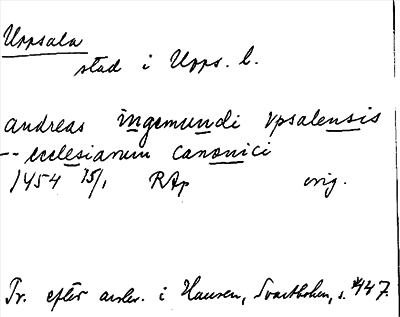 Uppsala
stad i Upps. l.
andreas ingemundi vpsalensis
-- ecclesiarum canonici
1454 15/1 RAp orig.
Tr. efter avskr. i Hausen, Svartboken, s. 447.